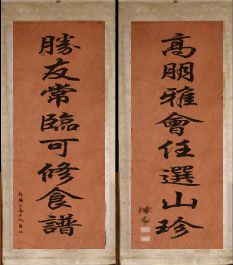 高朋雅會任選山珍
勝友常臨可修食譜